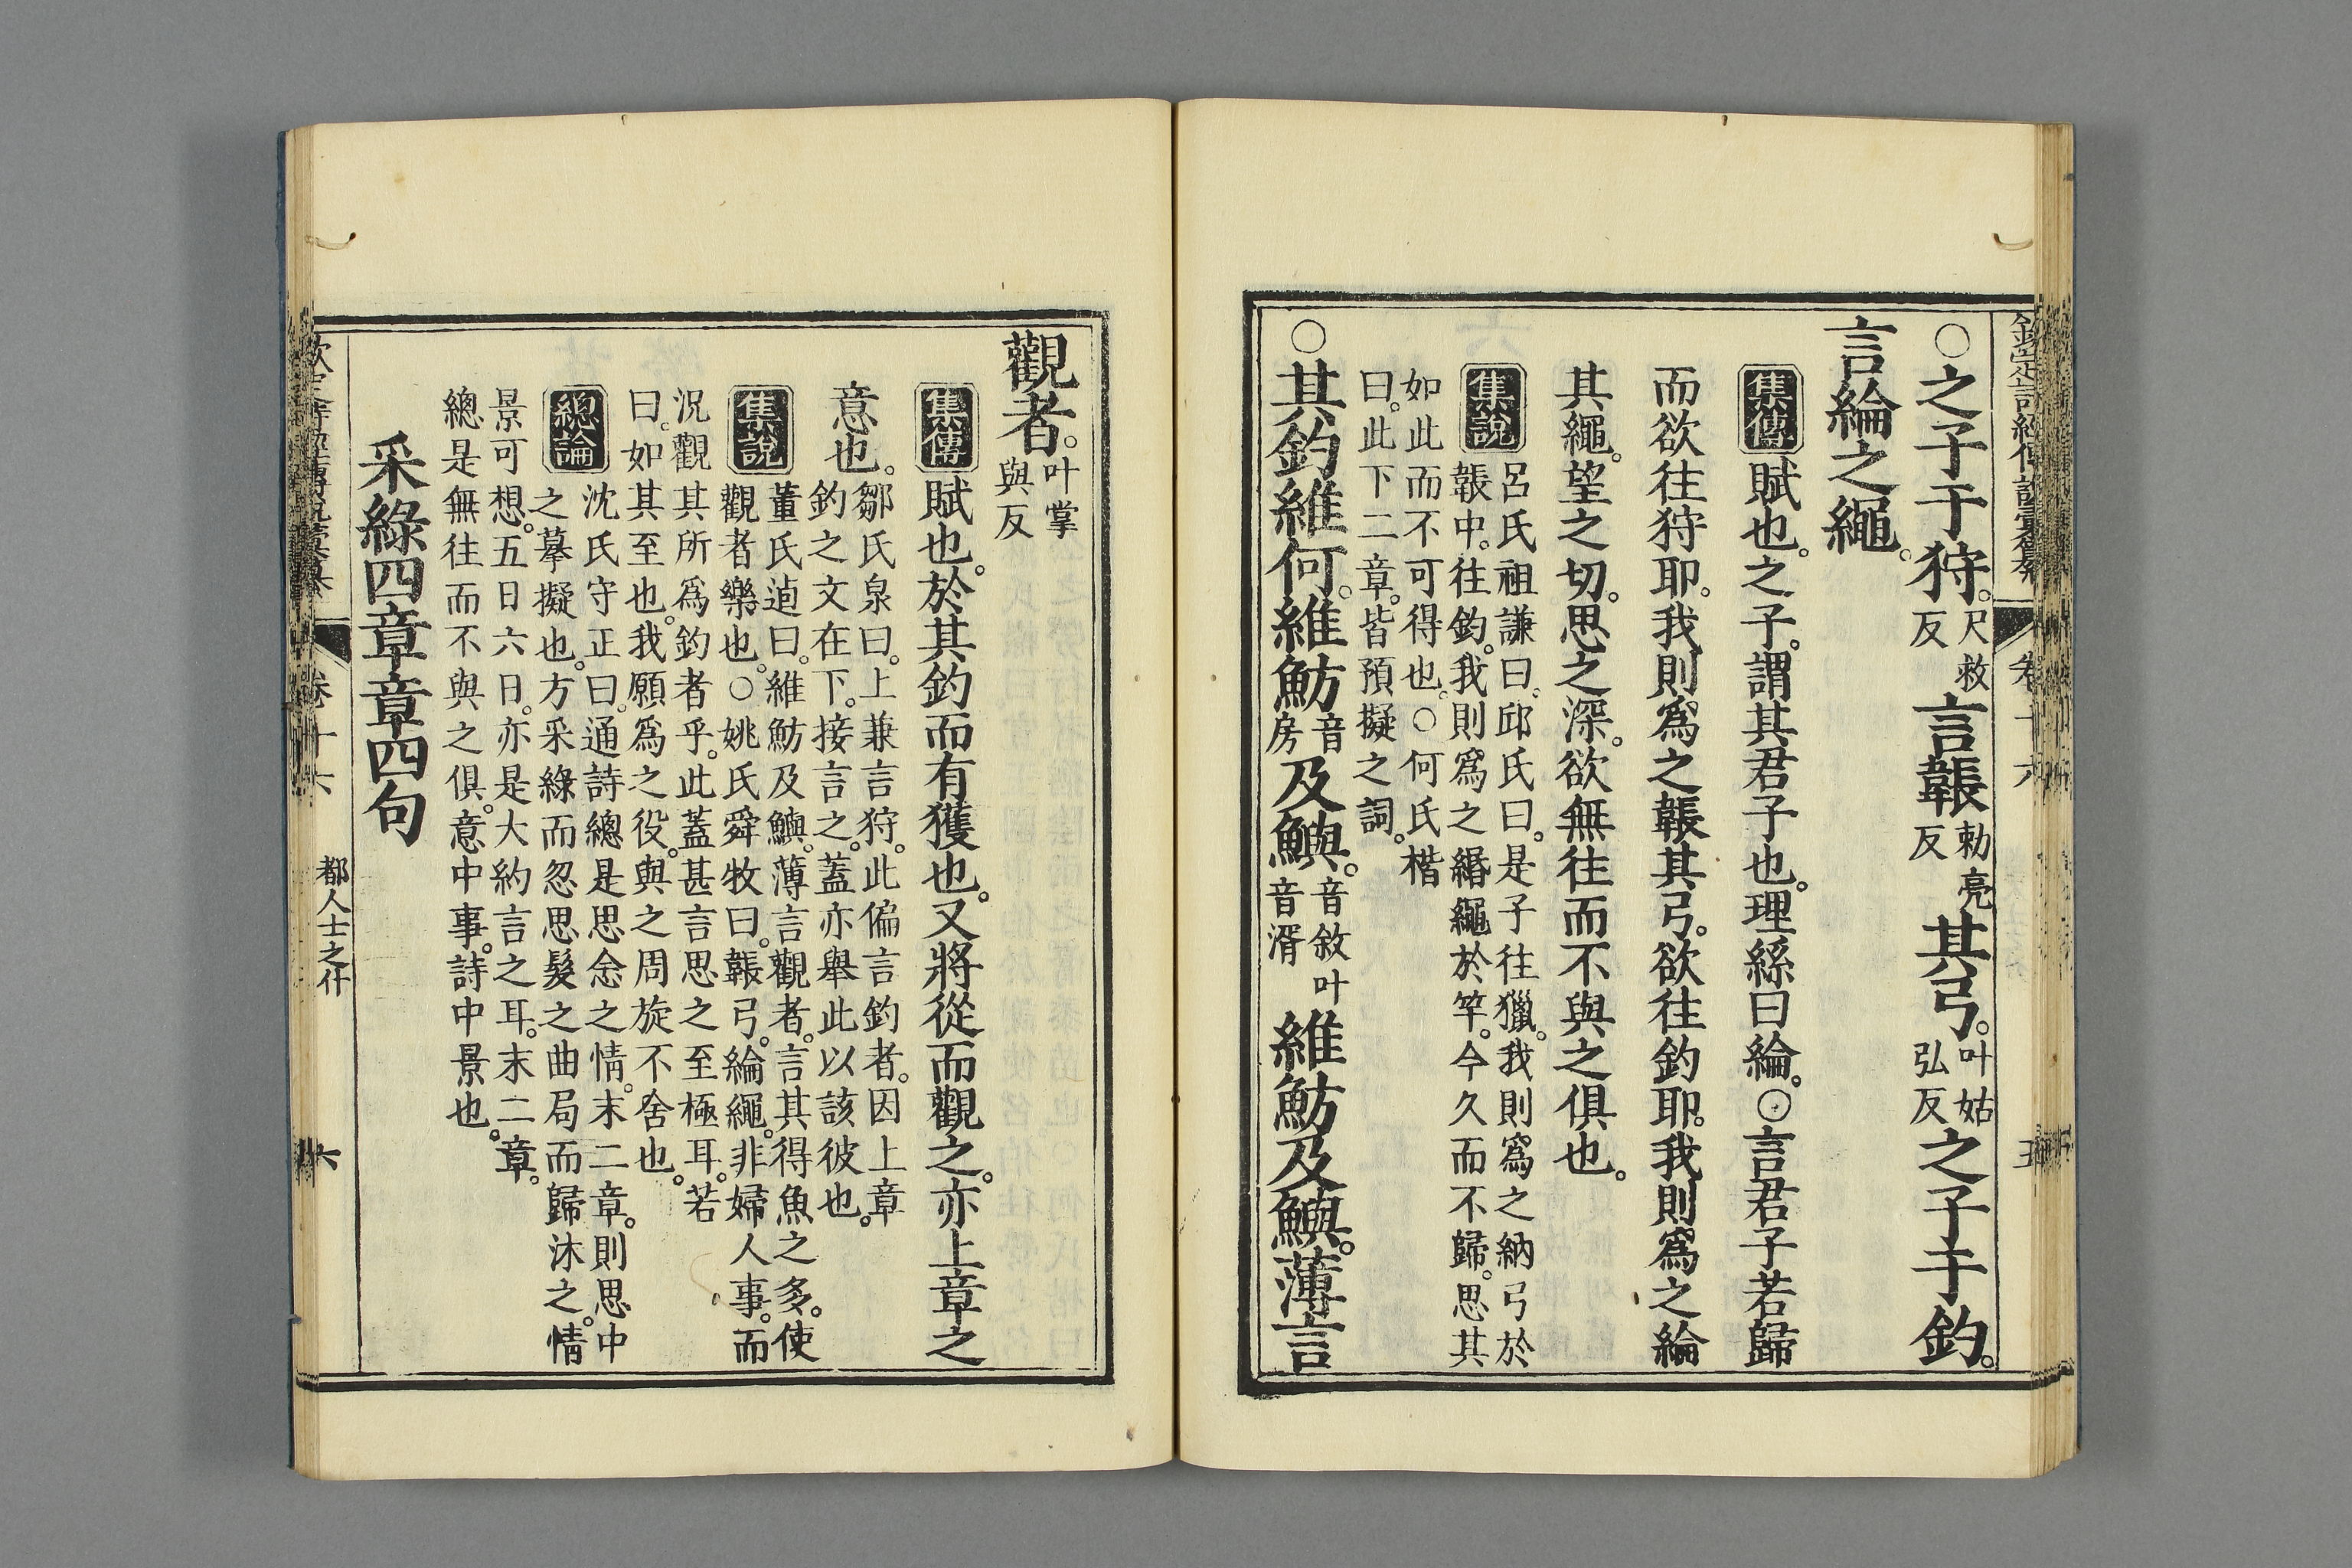 欽定詩經傳說彙纂 卷十六 五
○之子于狩。尺救反言韔勅亮反其弓。叶姑弘反之子于釣。
言綸之繩。
集傳 賦也。之子。謂其君子也。理絲曰綸。○言君子若歸
而欲往狩耶。我則爲之韔其弓。欲往釣耶。我則爲之綸
其繩。望之切。思之深。欲無往而不與之俱也。
集說 呂氏祖謙曰。邱氏曰。是子往獵。我則爲之納弓於
韔中。往釣。我則爲之緡繩於竿。今久而不歸。思其
如此而不可得也。○何氏楷
曰。此下二章。皆預擬之詞。
○其釣維何。維魴音房及鱮。音敘叶音湑維魴及鱮。薄言
觀者。叶掌與反
集傳 賦也。於其釣而有獲也。又將從而觀之。亦上章之
意也。鄒氏泉曰。上兼言狩。此偏言釣者。因上章
釣之文在下。接言之。蓋亦舉此以該彼也。
集說 董氏逌曰。維魴及鱮。薄言觀者。言其得魚之多。使
觀者樂也。○姚氏舜牧曰。韔弓。綸繩。非婦人事。而
況觀其所爲釣者乎。此蓋甚言思之至極耳。若
曰。如其至也。我願爲之役。與之周旋不舍也。
總論 沈氏守正曰。通詩總是思念之情。末二章。則思中
之摹擬也。方采綠而忽思髮之曲局而歸沐之。情
景可想。五日六日。亦是大約言之耳。末二章。
總是無往而不與之俱。意中事。詩中景也。
采綠四章章四句
欽定詩經傳說彙纂 卷十六 都人士之什 六